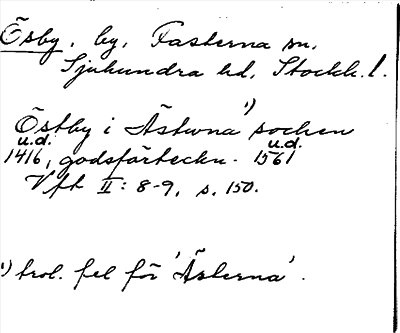 Ösby, by, Fasterna sn,
Sjuhundra hd, Stockh. l.
Östby i Ästwna¹⁾ sochen
u.d. u.d.
1416, godsförteckn. 1561
Vft II: 8-9, s. 150.
¹⁾ trol. fel för 'Ästerna'.